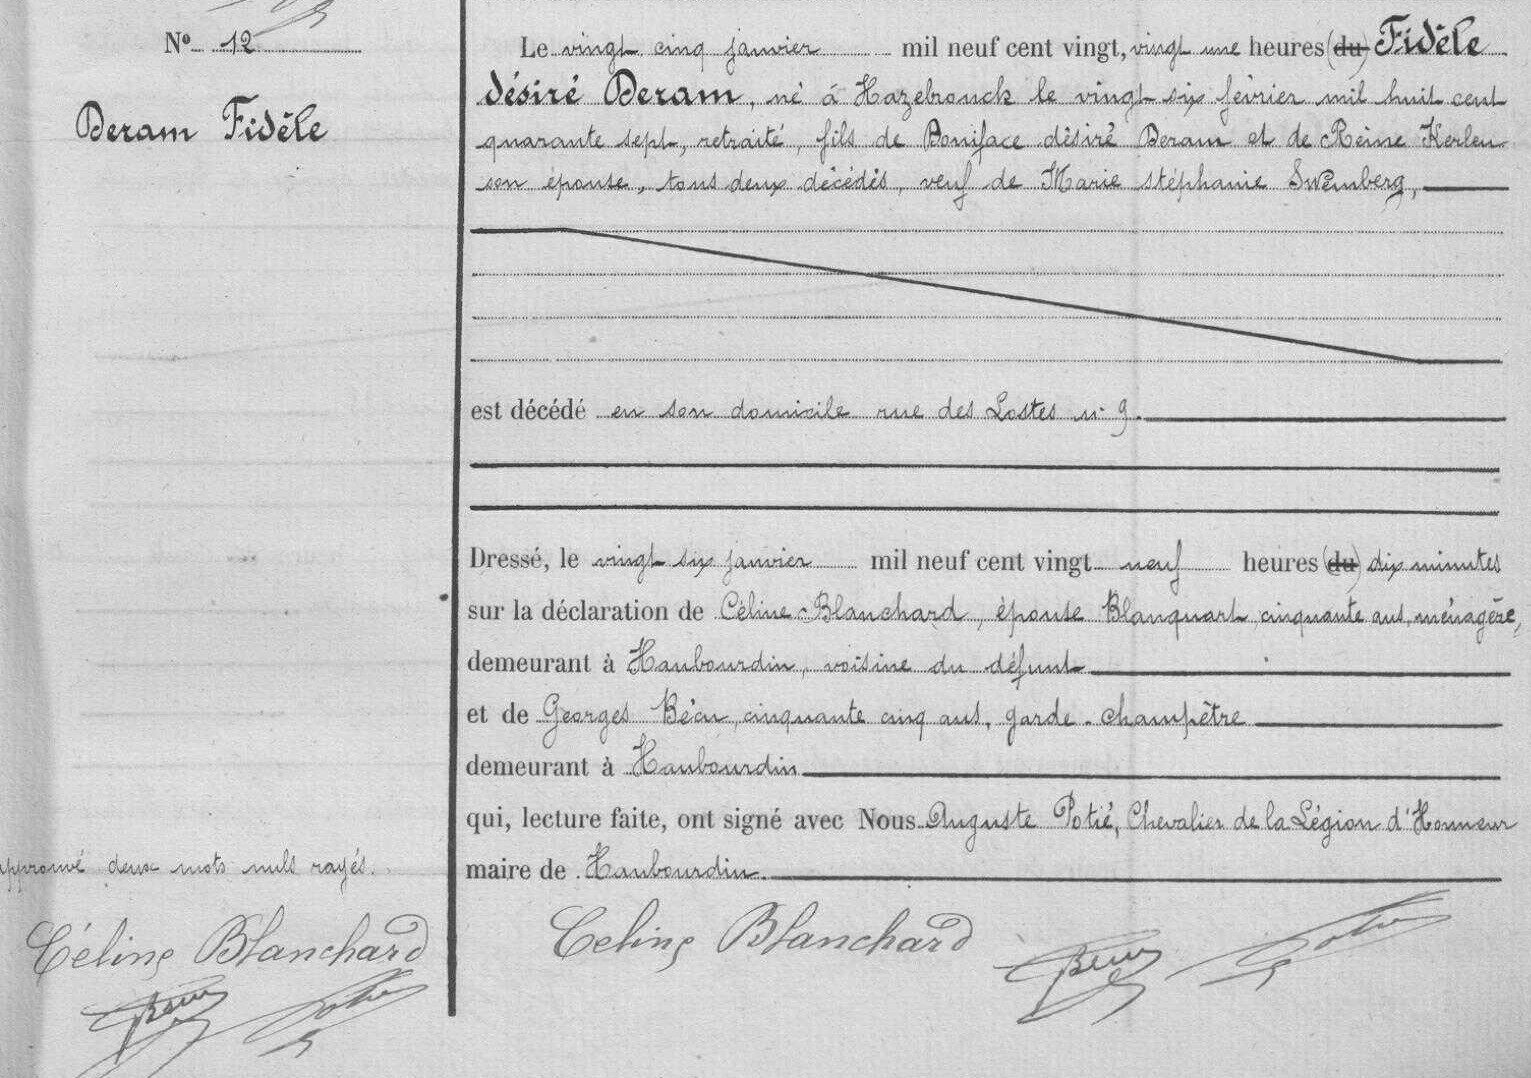 N° 12
Deram Fidèle
Le vingt cinq janvier mil neuf cent vingt, vingt une heures (du) Fidèle
désiré Deram, né à Hazebrouck le vingt six février mil huit cent
quarante sept, retraité, fils de Boniface désiré Deram et de Reine Kerleu
son épouse, tous deux décédés, veuf de Marie stéphanie Swemberg,
est décédé en son domicile rue des Lostes n° 9.
Dressé, le vingt six janvier mil neuf cent vingt neuf heures (du) dix minutes
sur la déclaration de Céline Blanchard, épouse Blanquart, cinquante ans, ménagère,
demeurant à Haubourdin, voisine du défunt
et de Georges Bécu, cinquante cinq ans, garde-champêtre
demeurant à Haubourdin
qui, lecture faite, ont signé avec Nous Auguste Potié, Chevalier de la Légion d'Honneur
maire de Haubourdin.
approuvé deux mots nuls rayés.
Céline Blanchard
Celine Blanchard